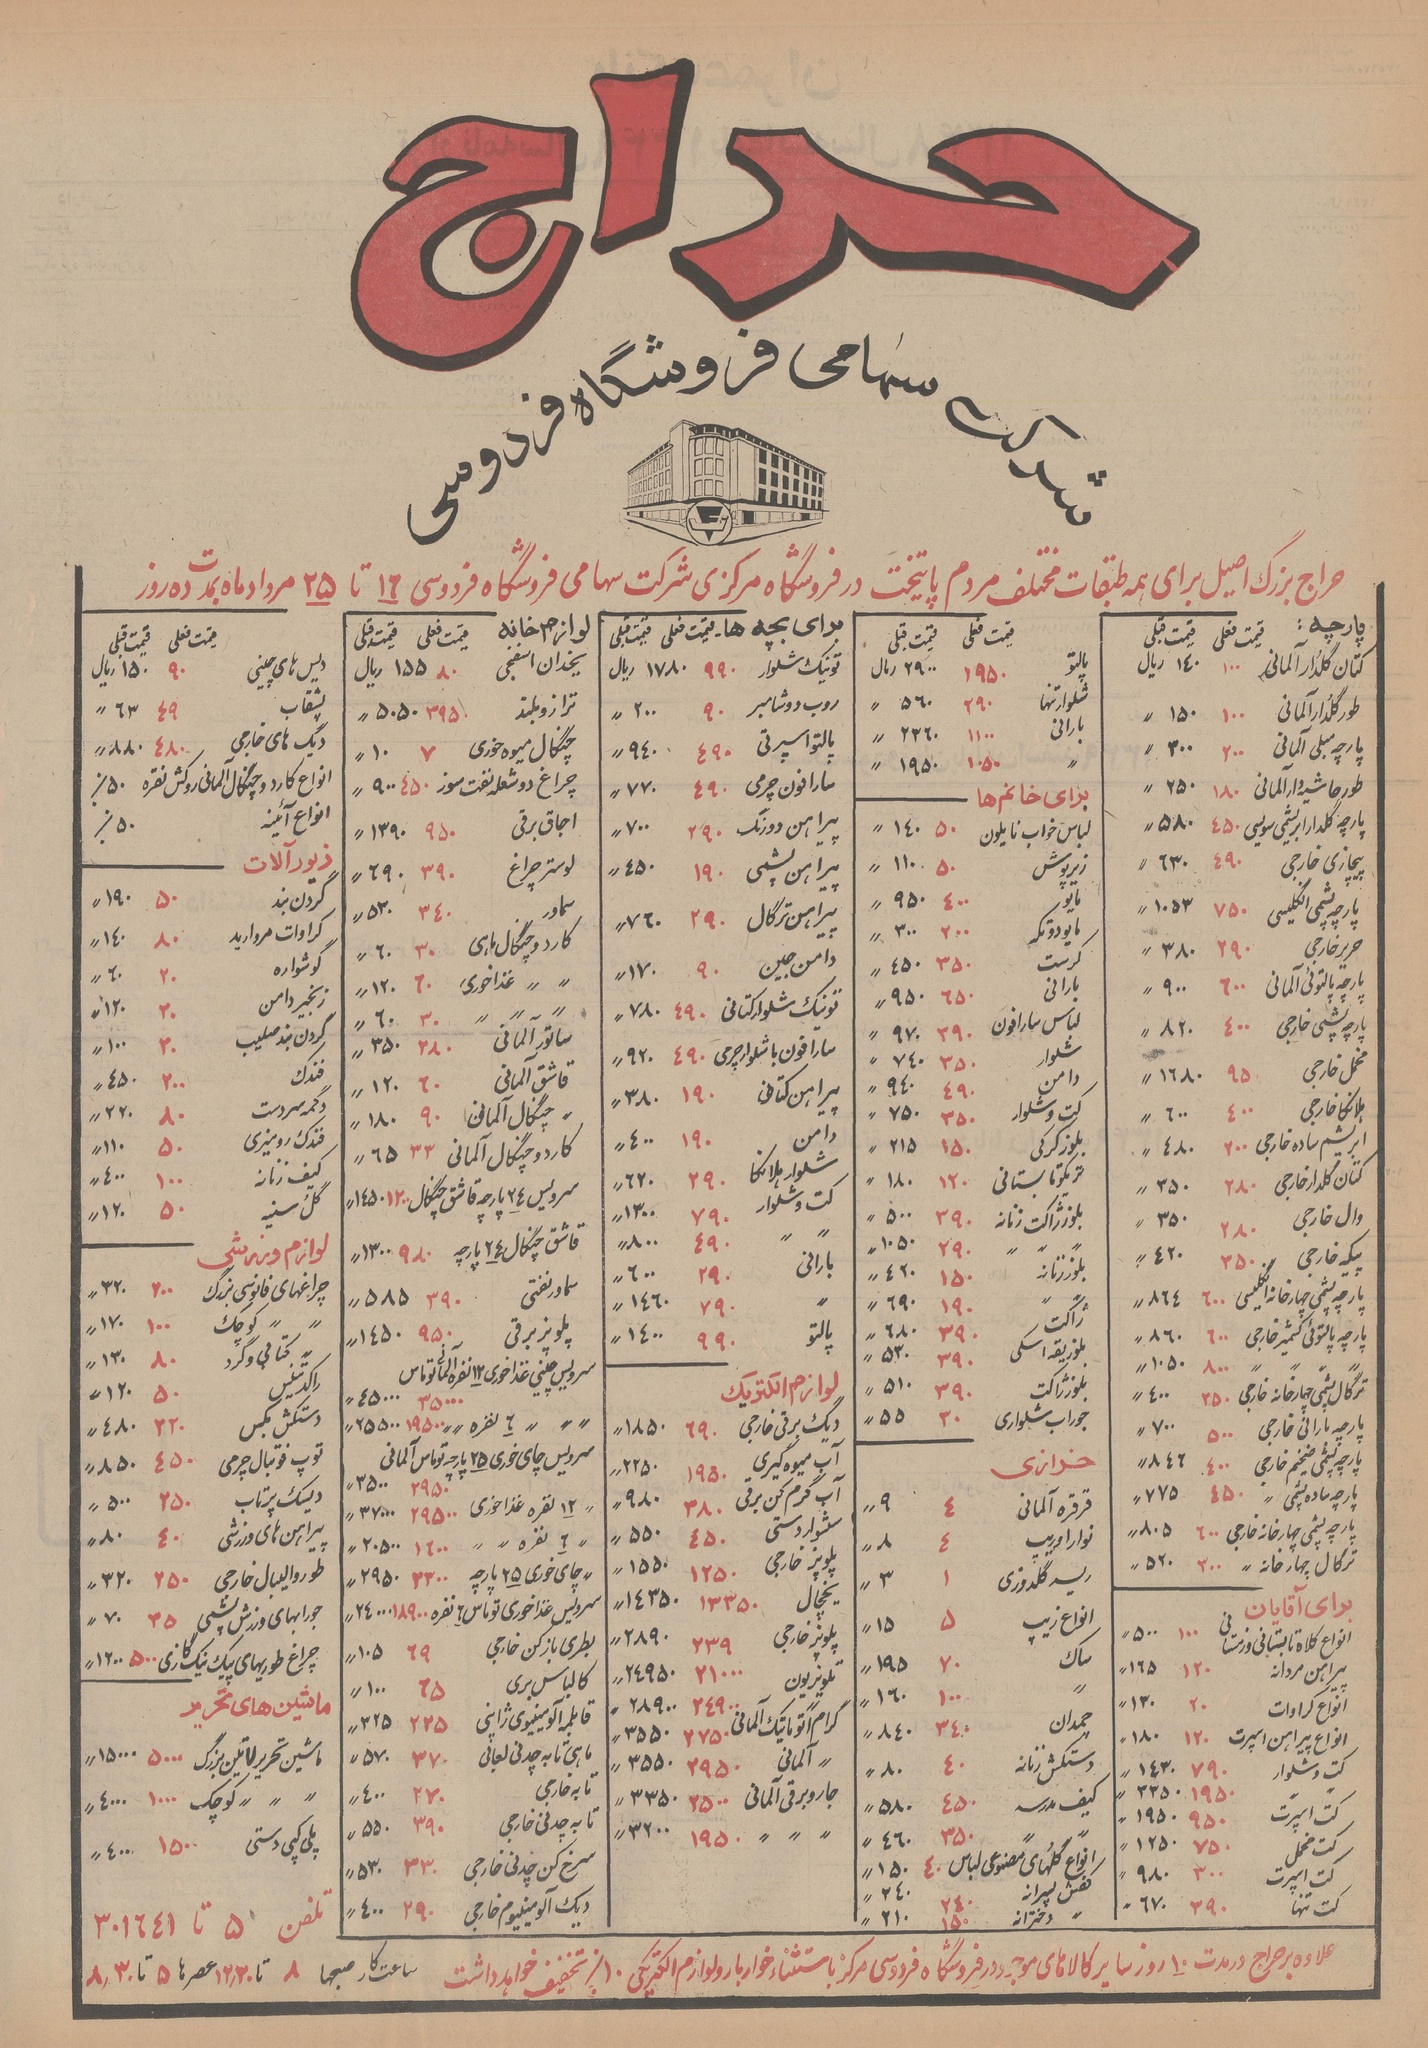 حراج
شرکت سهامی فروشگاه فردوسی
حراج بزرگ اصیل برای همه طبقات مختلف مردم پایتخت در فروشگاه مرکزی شرکت سهامی فروشگاه فردوسی ۱۶ تا ۲۵ مرداد ماه بمدت ده روز
پارچه : قیمت فعلی قیمت قبلی
کتان گلدار آلمانی ۱۰۰ ۱۴۰ ریال
طور گلدار آلمانی ۱۰۰ ۱۵۰ "
پارچه مبلی آلمانی ۲۰۰ ۳۰۰ "
طور حاشیه دار آلمانی ۱۸۰ ۲۵۰ "
پارچه گلدار ابریشمی سویسی ۴۵۰ ۵۸۰ "
پیچازی خارجی ۴۹۰ ۶۳۰ "
پارچه پشمی انگلیسی ۷۵۰ ۱۰۵۳ "
حریر خارجی ۲۹۰ ۳۸۰ "
پارچه پالتوئی آلمانی ۶۰۰ ۹۰۰ "
پارچه پشمی خارجی ۴۰۰ ۸۲۰ "
مخمل خارجی ۹۵ ۱۶۸۰ "
هلانکا خارجی ۴۰۰ ۶۰۰ "
ابریشم ساده خارجی ۲۰۰ ۴۸۰ "
کتان گلدار خارجی ۲۸۰ ۳۵۰ "
وال خارجی ۲۸۰ ۳۵۰ "
پیکه خارجی ۳۵۰ ۴۲۰ "
پارچه پشمی چهارخانه انگلیسی ۶۰۰ ۸۶۴ "
پارچه پالتوئی کشمیر خارجی ۶۰۰ ۸۶۰ "
" " " ۸۰۰ ۱۰۵۰ "
ترگال پشمی چهارخانه خارجی ۲۵۰ ۴۰۰ "
پارچه بارانی خارجی ۵۰۰ ۷۰۰ "
پارچه پشمی ضخیم خارجی ۴۰۰ ۸۴۶ "
پارچه ساده پشمی " ۴۵۰ ۷۷۵ "
پارچه پشمی چهارخانه خارجی ۶۰۰ ۸۰۵ "
ترگال چهارخانه " ۳۰۰ ۵۲۰ "
برای آقایان
انواع کلاه تابستانی و زمستانی ۱۰۰ ۵۰۰ "
پیراهن مردانه ۱۲۰ ۱۶۵ "
انواع کراوات ۲۰ ۱۳۰ "
انواع پیراهن اسپرت ۱۲۰ ۱۸۰ "
کت و شلوار ۷۹۰ ۱۴۳۰ "
" ۱۹۵۰ ۲۳۵۰ "
کت اسپرت ۹۵۰ ۱۹۵۰ "
کت مخمل ۷۵۰ ۱۲۵۰ "
کت اسپرت ۳۰۰ ۹۸۰ "
کت تنها ۳۹۰ ۶۷۰ "
قیمت فعلی قیمت قبلی
پالتو ۱۹۵۰ ۲۹۰۰ ریال
شلوار تنها ۲۹۰ ۵۶۰ "
بارانی ۱۱۰۰ ۲۳۶۰ "
" ۱۰۵۰ ۱۹۵۰ "
برای خانم ها
لباس خواب نایلون ۵۰ ۱۴۰ "
زیرپوش ۵۰ ۱۱۰ "
مایو ۴۰۰ ۹۵۰ "
مایو دو تیکه ۲۰۰ ۳۰۰ "
کرست ۳۵۰ ۴۵۰ "
بارانی ۶۵۰ ۹۵۰ "
لباس سارافون ۳۹۰ ۹۷۰ "
شلوار ۳۵۰ ۷۴۰ "
دامن ۴۹۰ ۹۴۰ "
کت و شلوار ۳۵۰ ۷۵۰ "
بلوز کرکی ۱۵۰ ۲۱۵ "
تریکو تابستانی ۱۲۰ ۱۸۰ "
بلوز ژاکت زنانه ۳۹۰ ۵۰۰ "
" " " ۲۹۰ ۱۰۵۰ "
بلوز زنانه ۱۵۰ ۴۲۰ "
" " ۱۹۰ ۶۹۰ "
ژاکت ۳۹۰ ۶۸۰ "
بلوز یقه اسکی ۳۹۰ ۵۳۰ "
بلوز ژاکت ۳۹۰ ۵۱۰ "
جوراب شلواری ۳۰ ۵۵ "
خرازی
قرقره آلمانی ۴ ۹ "
نوار اوریب ۴ ۸ "
ریسه گلدوزی ۱ ۳ "
انواع زیپ ۵ ۱۵ "
ساک ۷۰ ۱۹۵ "
" ۱۰۰ ۱۶۰ "
چمدان ۳۴۰ ۸۴۰ "
دستکش زنانه ۴۰ ۸۰ "
کیف مدرسه ۴۵۰ ۵۸۰ "
" " ۳۵۰ ۴۶۰ "
انواع گلهای مصنوعی لباس ۴۰ ۱۵۰ "
کفش پسرانه ۲۴۰ ۲۴۰ "
" دخترانه ۱۵۰ ۲۱۰ "
برای بچه ها قیمت فعلی قیمت قبلی
تونیک شلوار ۹۹۰ ۱۷۸۰ ریال
روب دوشامبر ۹۰ ۲۰۰ "
پالتو اسپرتی ۴۹۰ ۹۴۰ "
سارافون چرمی ۴۹۰ ۷۷۰ "
پیراهن دورنگ ۲۹۰ ۷۰۰ "
پیراهن پشمی ۱۹۰ ۴۵۰ "
پیراهن ترگال ۲۹۰ ۷۶۰ "
دامن جین ۹۰ ۱۷۰ "
تونیک شلوار کتانی ۴۹۰ ۷۸۰ "
سارافون با شلوار چرمی ۴۹۰ ۹۲۰ "
پیراهن کتانی ۱۹۰ ۳۸۰ "
دامن ۱۹۰ ۴۰۰ "
شلوار هلانکا ۲۹۰ ۶۲۰ "
کت و شلوار ۷۹۰ ۱۳۰۰ "
" " ۴۹۰ ۸۰۰ "
بارانی ۲۹۰ ۶۰۰ "
" ۷۹۰ ۱۴۶۰ "
پالتو ۹۹۰ ۱۴۰۰ "
لوازم الکتریک
دیگ برقی خارجی ۶۹۰ ۱۸۵۰ "
آب میوه گیری ۱۹۵۰ ۲۲۵۰ "
آب گرم کن برقی ۳۸۰ ۹۸۰ "
سشوار دستی ۴۵۰ ۵۵۰ "
پلوپز خارجی ۱۲۵۰ ۱۵۵۰ "
یخچال ۱۳۳۵۰ ۱۴۳۵۰ "
پلوپز خارجی ۲۳۹ ۲۸۹۰ "
تلویزیون ۲۱۰۰۰ ۲۴۹۵۰ "
" ۲۴۹۰۰ ۲۸۹۰۰ "
گرام اتوماتیک آلمانی ۲۷۵۰ ۳۵۵۰ "
" آلمانی ۲۹۵۰ ۳۵۵۰ "
جارو برقی آلمانی ۲۵۰۰ ۳۳۵۰ "
" " " ۱۹۵۰ ۳۲۰۰ "
لوازم خانه قیمت فعلی قیمت قبلی
یخدان اسفنجی ۸۰ ۱۵۵ ریال
ترازو بلند ۳۹۵ ۵۰۵۰ "
چنگال میوه خوری ۷ ۱۰ "
چراغ دو شعله نفت سوز ۴۵۰ ۹۰۰ "
اجاق برقی ۹۵۰ ۱۳۹۰ "
لوستر چراغ ۳۹۰ ۶۹۰ "
سماور ۳۴۰ ۵۳۰ "
کارد و چنگال ماهی ۳۰ ۶۰ "
" " غذاخوری ۶۰ ۱۲۰ "
" " " ۳۰ ۶۰ "
ساتور آلمانی ۲۸۰ ۳۵۰ "
قاشق آلمانی ۶۰ ۱۲۰ "
" چنگال آلمانی ۹۰ ۱۸۰ "
کارد و چنگال آلمانی ۳۳ ۶۵ "
سرویس ۲۴ پارچه قاشق چنگال ۱۲۰۰ ۱۴۵۰ "
قاشق چنگال ۲۴ پارچه ۹۸۰ ۱۳۰۰ "
سماور نفتی ۳۹۰ ۵۸۵ "
پلوپز برقی ۹۵۰ ۱۴۵۰ "
سرویس چینی غذاخوری ۱۲ نفره آلمانی توماس
۳۵۰۰۰ ۴۵۰۰۰ "
" " " ۶ نفره " ۱۹۵۰۰ ۲۵۵۰۰ "
سرویس چای خوری ۲۵ پارچه توماس آلمانی
۲۹۵۰ ۳۵۰۰ "
" ۱۲ نفره غذاخوری ۲۹۵۰۰ ۳۷۰۰۰ "
" ۶ نفره " " ۱۶۰۰ ۲۰۵۰۰ "
" چای خوری ۲۵ پارچه ۲۳۰۰ ۲۹۵۰ "
سرویس غذاخوری توماس ۶ نفره ۱۸۹۰۰ ۲۴۰۰۰ "
بطری بازکن خارجی ۶۹ ۱۰۵ "
کالباس بری ۶۵ ۱۰۰ "
قابلمه آلومینیوی ژاپنی ۲۲۵ ۳۲۵ "
ماهی تابه چدنی لعابی ۳۷۰ ۵۷۰ "
تابه خارجی ۲۷۰ ۴۰۰ "
تابه چدنی خارجی ۳۹۰ ۵۵۰ "
سرخ کن چدنی خارجی ۳۳۰ ۵۳۰ "
دیگ آلومینیوم خارجی ۲۹۰ ۴۰۰ "
قیمت فعلی قیمت قبلی
دیس های چینی ۹۰ ۱۵۰ ریال
بشقاب ۴۹ ۶۳ "
دیگ های خارجی ۴۸۰ ۸۸۰ "
انواع کارد و چنگال آلمانی روکش نقره ۵۰٪
انواع آئینه ۵۰٪
زیورآلات
گردن بند ۵۰ ۱۹۰ "
کراوات مروارید ۸۰ ۱۴۰ "
گوشواره ۲۰ ۶۰ "
زنجیر دامن ۳۰ ۱۲۰ "
گردن بند صلیب ۳۰ ۱۰۰ "
فندک ۲۰۰ ۴۵۰ "
دگمه سردست ۸۰ ۲۲۰ "
فندک رومیزی ۵۰ ۱۱۰ "
کیف زنانه ۱۰۰ ۴۰۰ "
گل سینه ۵۰ ۱۲۰ "
لوازم ورزشی
چراغهای فانوسی بزرگ ۲۰۰ ۳۲۰ "
" " کوچک ۱۰۰ ۱۷۰ "
" کتابی و گرد ۸۰ ۱۳۰ "
راکت تنیس ۵۰ ۱۲۰ "
دستکش بکس ۲۲۰ ۴۸۰ "
توپ فوتبال چرمی ۴۵۰ ۸۵۰ "
دیسک پرتاب ۲۵۰ ۵۰۰ "
پیراهن های ورزشی ۴۰ ۸۰ "
طور والیبال خارجی ۲۵۰ ۳۲۰ "
جورابهای ورزش پشمی ۳۵ ۷۰ "
چراغ طوریهای پیک نیک گازی ۵۰۰ ۱۲۰۰ "
ماشین های تحریر
ماشین تحریر لاتین بزرگ ۵۰۰۰ ۱۵۰۰۰ "
" " " کوچک ۱۰۰۰ ۴۰۰۰ "
پلی کپی دستی ۱۵۰۰ ۴۰۰۰ "
تلفن ۵ تا ۳۰۱۶۴۱
علاوه بر حراج در مدت ۱۰ روز سایر کالاهای موجود در فروشگاه فردوسی مرکز باستثناء خواربار و لوازم الکتریکی ۱۰٪ تخفیف خواهد داشت
ساعت کار صبحها ۸ تا ۱۲/۳۰ عصرها ۵ تا ۸/۳۰